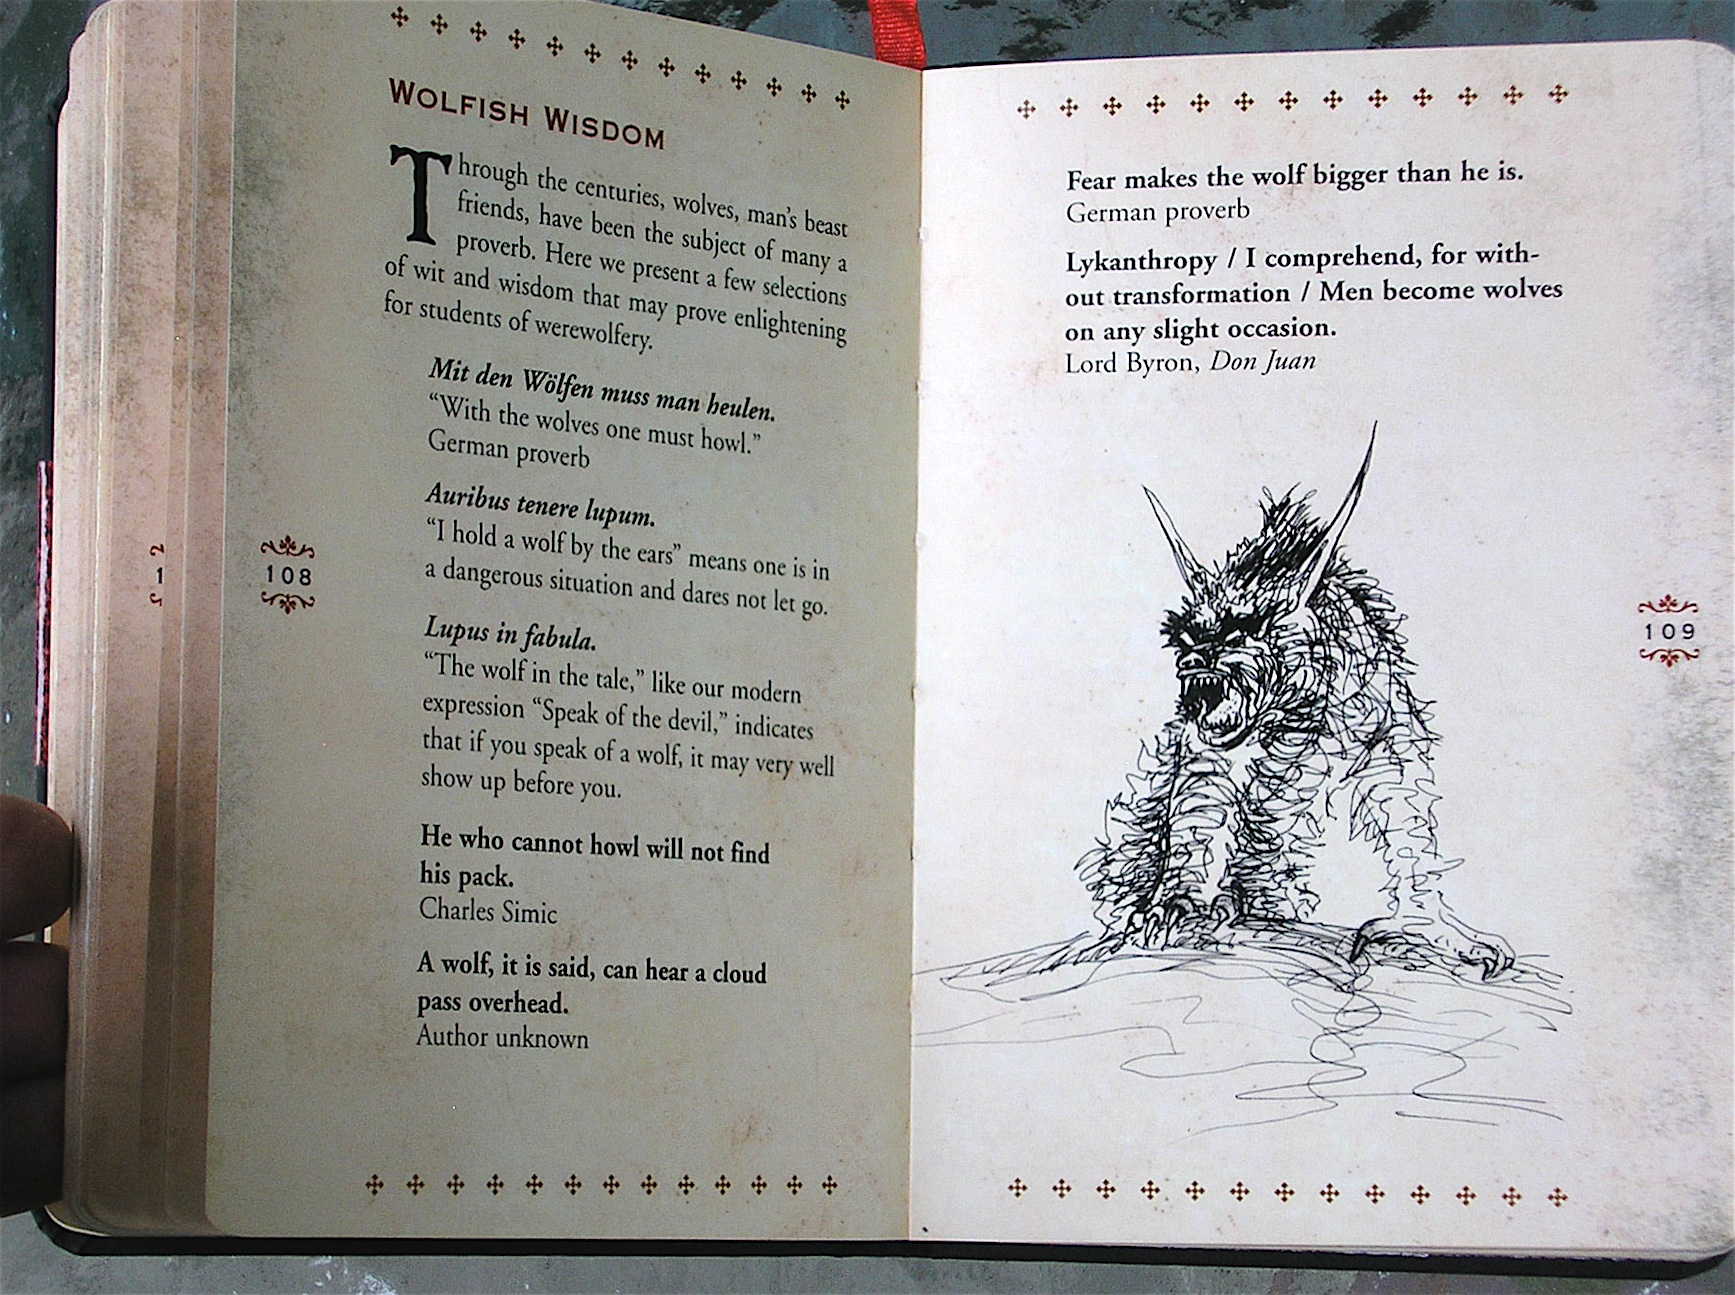 WOLFISH WISDOM
Through the centuries, wolves, man's beast
friends, have been the subject of many a
proverb. Here we present a few selections
of wit and wisdom that may prove enlightening
for students of werewolfery.
Mit den Wölfen muss man heulen.
“With the wolves one must howl.”
German proverb
Auribus tenere lupum.
“I hold a wolf by the ears” means one is in
a dangerous situation and dares not let go.
Lupus in fabula.
“The wolf in the tale,” like our modern
expression “Speak of the devil,” indicates
that if you speak of a wolf, it may very well
show up before you.
He who cannot howl will not find
his pack.
Charles Simic
A wolf, it is said, can hear a cloud
pass overhead.
Author unknown
1
108
Fear makes the wolf bigger than he is.
German proverb
Lykanthropy / I comprehend, for with-
out transformation / Men become wolves
on any slight occasion.
Lord Byron, Don Juan
109